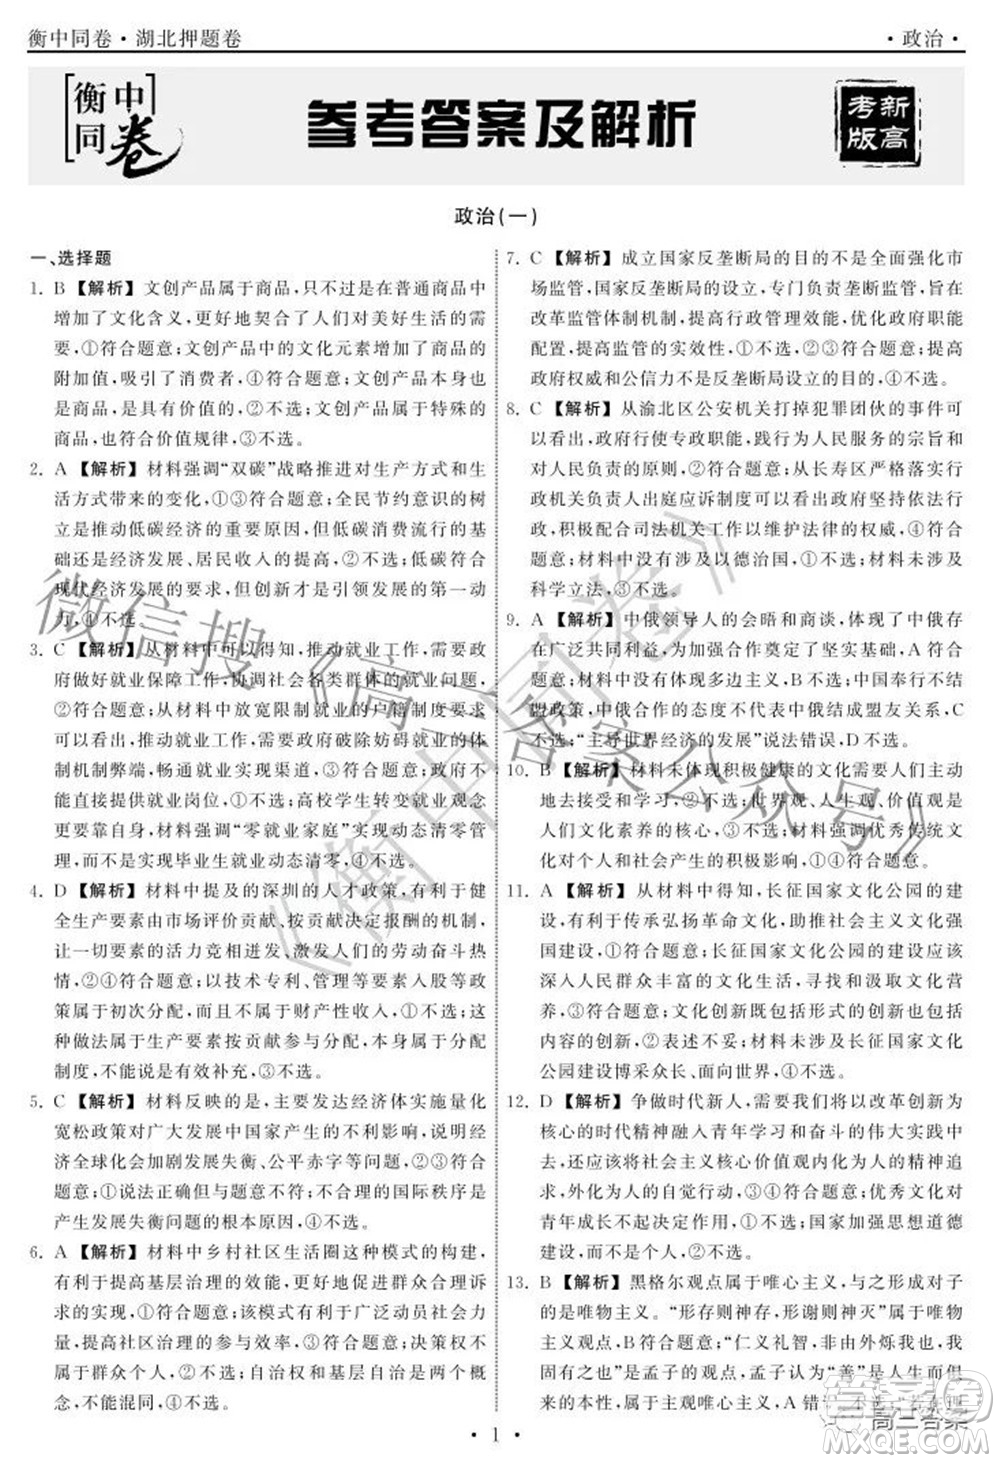 衡中同卷·湖北押题卷
·政治·
衡中同卷
参考答案及解析
新高考版
政治(一)
一、选择题
1. B 【解析】文创产品属于商品,只不过是在普通商品中
增加了文化含义,更好地契合了人们对美好生活的需
要,①符合题意;文创产品中的文化元素增加了商品的
附加值,吸引了消费者,④符合题意;文创产品本身也
是商品,是具有价值的,②不选;文创产品属于特殊的
商品,也符合价值规律,③不选。
2. A 【解析】材料强调“双碳”战略推进对生产方式和生
活方式带来的变化,①③符合题意;全民节约意识的树
立是推动低碳经济的重要原因,但低碳消费流行的基
础还是经济发展、居民收入的提高,②不选;低碳契合
现代经济发展的要求,但创新才是引领发展的第一动
力,④不选。
3. C 【解析】从材料中可以得出,需要更好地发挥政
府做好就业保障工作,协调社会各类群体的就业问题,
②符合题意;从材料中放宽限制就业的户籍制度可以
看出,推动就业工作,需要政府破除妨碍就业的体
制机制弊端,畅通就业实现渠道,③符合题意;政府不
能直接提供就业岗位,①不选;高校学生转变就业观念
更要靠自身,材料强调“零就业家庭”实现动态清零管
理,而不是毕业生就业动态清零,④不选。
4. D 【解析】材料中提及的深圳的人才政策,有利于健
全生产要素由市场评价贡献、按贡献决定报酬的机制,
让一切要素的活力竞相迸发、激发人们的劳动奋斗热
情,②④符合题意;以技术专利、管理等方式入股等政
策属于初次分配,不属于财产性收入,①不选;材料中
这种做法属于生产要素按贡献参与分配,不属于分配
制度,不能说是创新,③不选。
5. C 【解析】材料反映的是,主要发达经济体实施量化
宽松政策对广大发展中国家产生的不利影响,说明经
济全球化会加剧发展失衡、公平赤字等问题,②③符合
题意;①说法正确但与题意不符;不合理的国际秩序是
产生发展失衡问题的根本原因,④不选。
6. A 【解析】材料中乡村社区生活圈这种模式的构建,
有利于提高基层治理的效能,会促进群众合理利益诉
求的实现,①符合题意;该模式有利于广泛动员社会力
量,提高社区治理的参与效率,②符合题意;决策权不
属于基层,③不选;自治权和基层自治是两个概念,不
能混同,④不选。
7. C 【解析】成立国家反垄断局的目的不是全面强化市
场监管,国家反垄断局的设立,专门负责垄断监管,旨在
改革监管体制机制,提高行政管理效能,优化政府职能
配置,提高监管的实效性,①不选,②③符合题意;提高
政府权威和公信力不是反垄断局设立的目的,④不选。
8. C 【解析】从渝北区公安机关打掉犯罪团伙的事件可
以看出,政府行使专政职能,践行为人民服务的宗旨和
对人民负责的原则,②符合题意;从长寿区严格落实行
政机关负责人出庭应诉制度可以看出政府坚持依法行
政,积极配合司法机关工作以维护法律的权威,④符合
题意;材料中没有涉及以德治国,①不选;材料未涉及
科学立法,③不选。
9. A 【解析】中俄领导人的会晤和商谈,体现了中俄存
在广泛共同利益,为合作奠定了坚实基础,A符合
题意;材料未体现多边主义,B不选;中国奉行不结
盟政策,中俄合作的态度不代表中俄结成盟友关系,C
不选;“主导世界经济的发展”说法错误,D不选。
10. B 【解析】材料未体现积极健康的文化需要人们主动
地去感受和接受,②不选;世界观、人生观、价值观是
人们文化素养的核心,③不选;材料强调优秀传统文
化对个人和社会产生的积极影响,①④符合题意。
11. A 【解析】从材料中可以看出,长征国家文化公园的建
设,有利于传承弘扬革命文化,助推社会主义文化强
国建设,①符合题意;长征国家文化公园的建设应该
深入人民群众丰富的文化生活,从中汲取文化营
养,③符合题意;文化创新既包括形式的创新也包括
内容的创新,②表述不妥;材料未涉及长征国家文化
公园建设博采众长、面向世界,④不选。
12. D 【解析】争做时代新人,需要将以改革创新为
核心的时代精神融入青年学习和奋斗的伟大实践中
去,并积极将社会主义核心价值观内化为人的精神追
求,外化为人们的自觉行动,③④符合题意;优秀文化
对青年成长不起决定作用,①不选;国家加强思想道德
建设,而不是个人,②不选。
13. B 【解析】黑格尔观点属于唯心主义,与之形成对子的
是唯物主义。“形存则神存,形谢则神灭”属于唯物
主义观点,B符合题意;“仁义礼智,非由外烁我也,我
固有之也”是孟子的观点,孟子认为“善”是从人而俱
来的本性,属于主观唯心主义,A 错误
· 1 ·
微信搜《高三答案公众号》
《衡中同卷》
答案圈
MXQE.COM
高三答案